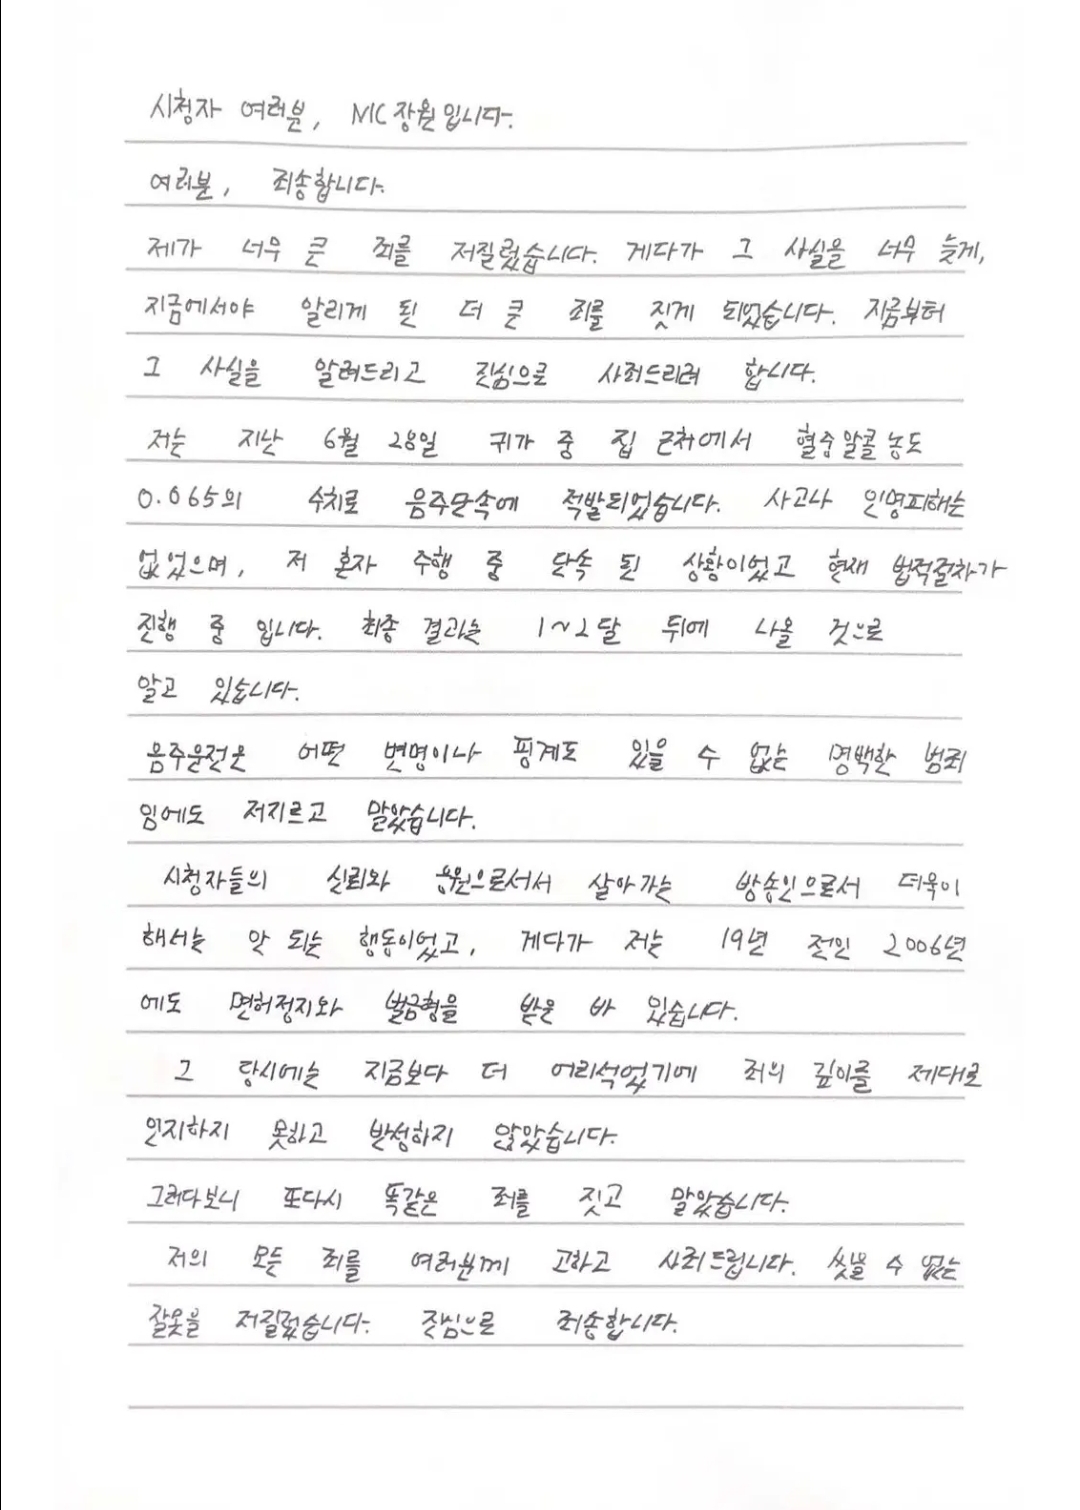 시청자 여러분, MC장원입니다.
여러분, 죄송합니다.
제가 너무 큰 죄를 저질렀습니다. 게다가 그 사실을 너무 늦게,
지금에서야 알리게 된 더 큰 죄를 짓게 되었습니다. 지금부터
그 사실을 알려드리고 진심으로 사죄드리려 합니다.
저는 지난 6월 28일 귀가 중 집 근처에서 혈중알콜농도
0.065의 수치로 음주단속에 적발되었습니다. 사고나 인명피해는
없었으며, 저 혼자 주행 중 단속 된 상황이었고 현재 법적절차가
진행 중 입니다. 최종 결과는 1~2달 뒤에 나올 것으로
알고 있습니다.
음주운전은 어떤 변명이나 핑계도 있을 수 없는 명백한 범죄
임에도 저지르고 말았습니다.
시청자들의 신뢰와 응원으로서서 살아가는 방송인으로서 더욱이
해서는 안 되는 행동이었고, 게다가 저는 19년 전인 2006년
에도 면허정지와 벌금형을 받은 바 있습니다.
그 당시에는 지금보다 더 어리석었기에 죄의 깊이를 제대로
인지하지 못하고 반성하지 않았습니다.
그러다보니 또다시 똑같은 죄를 짓고 말았습니다.
저의 모든 죄를 여러분께 고하고 사죄드립니다. 씻을 수 없는
잘못을 저질렀습니다. 진심으로 죄송합니다.